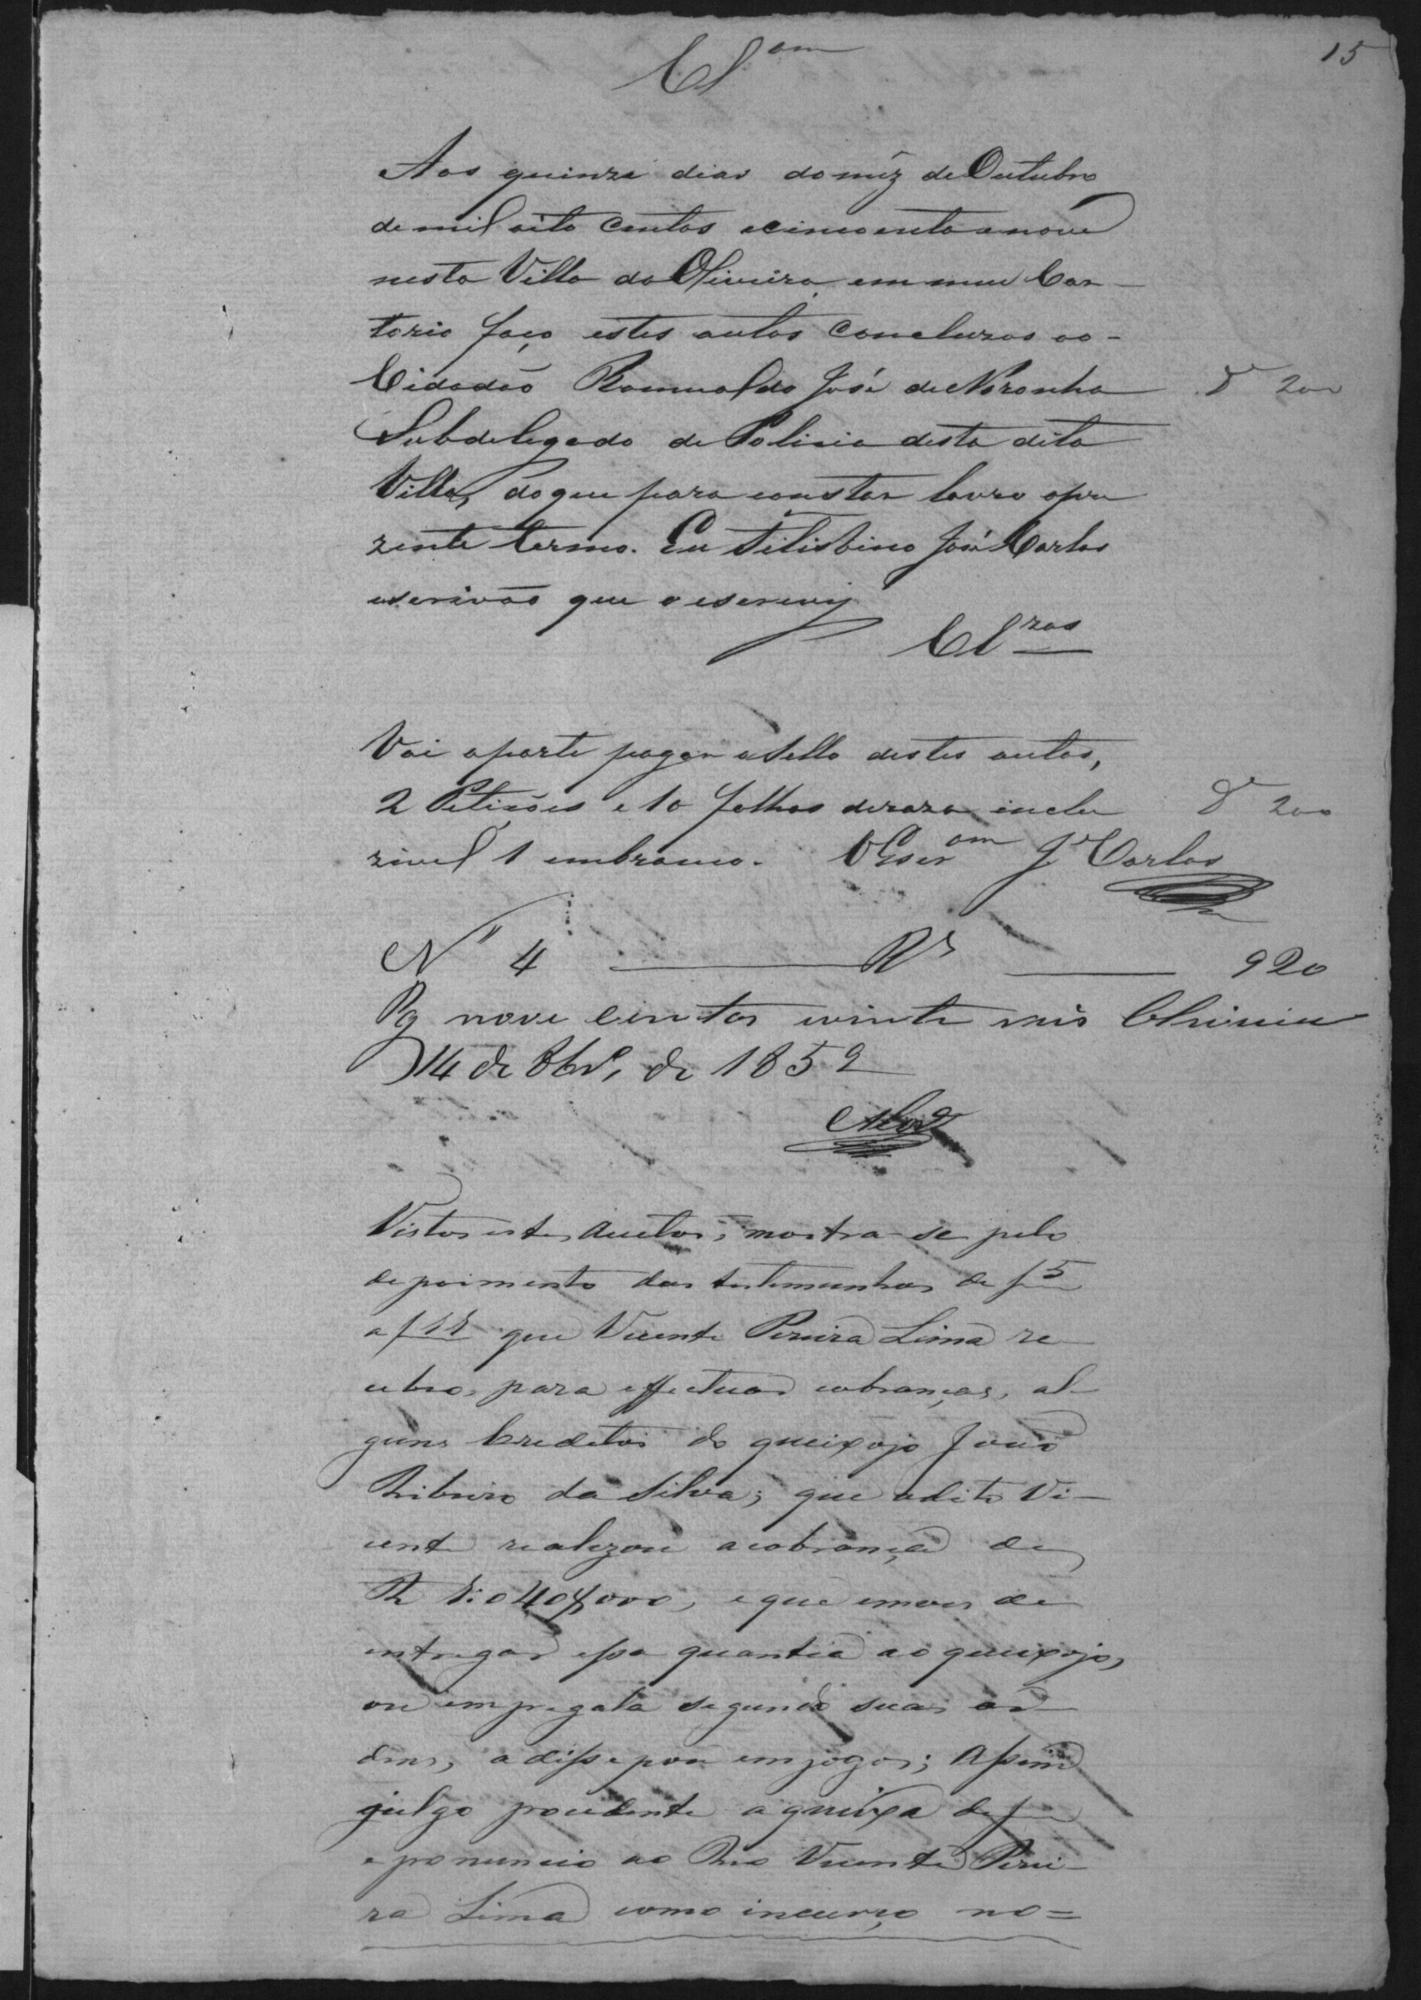 15
Cl^am
Aos quinze dias do mêz de Outubro
de mil oito centos e cincoenta e nove
nesta Villa da Oliveira, em meu Car-
torio faço estes autos concluzos ao-
Cidadão Romualdo José de Noronha
D^r 200
Subdelegado de Policia desta dita
Villa, do que para constar lavro o pre
zente termo. Eu Felisbino José Carlos
escrivão que o escrevy
Cl^zos
Vai a parte pagar o Sello destes autos,
2 Petições e 10 folhas de raza inclu
D^r 200
zivel 1 em branco. O Escr^am J^e Carlos
N° 4 R^s 920
Pg nove centos e vinte reis Oliveira
14 de 8br°, de 1859
Alvs
Vistos estes autos, mostra-se pelo
depoimento das testemunhas de f 5
a f 11 que Vicente Pereira Lima re
cebeo, para effectuar cobranças, al-
guns Creditos do queixozo João
Ribeiro da Silva; que o dito Vi-
cente realizou a cobrança de
R 1:040$000, e que em vez de
entregar essa quantia ao queixozo,
ou empregala segundo suas or-
dens, a dissepou em jogos; Assim
julgo procedente a queixa de f
e pronuncio ao Reo Vicente Perei-
ra Lima como incurço no=